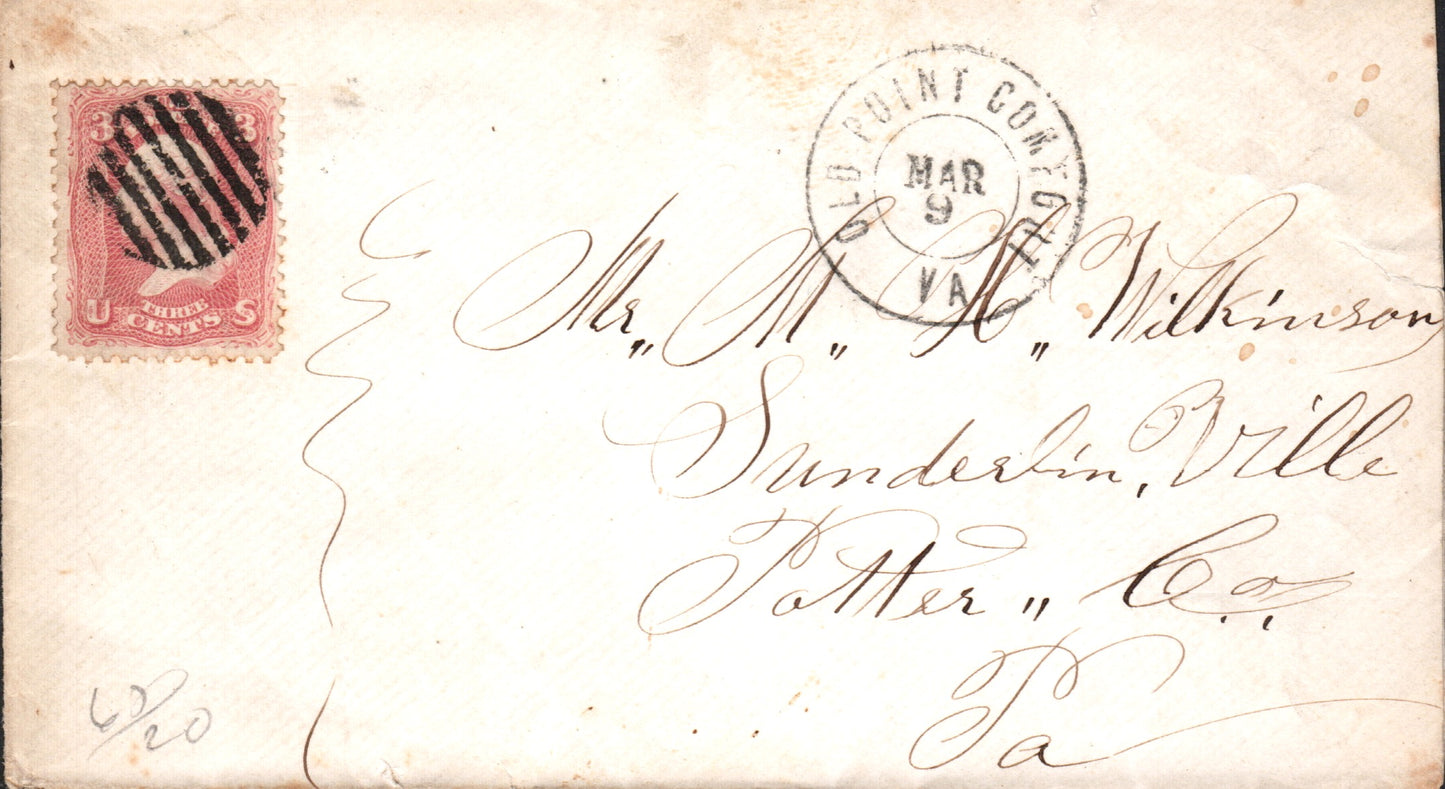 3 3
U THREE CENTS S
OLD POINT COMFORT
MAR
9
VA
Mr,, M,, H,, Wilkinson
Sunderlin, Ville
Potter,, Co.,
Pa